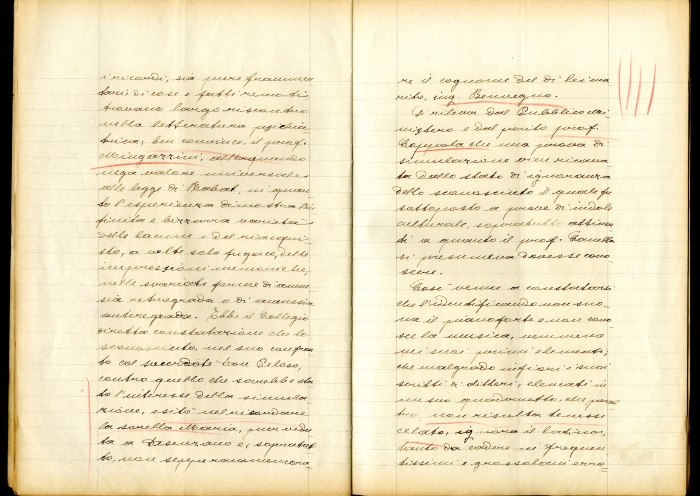 i ricordi, sia pure frammen
tari di cose e fatti remoti
trovano largo riscontro
nella letteratura psichia
trica; ben conosce, il prof.
Mingazzini, allorquando
nega valore universale
alle legge di Ribot, in quan
to l'esperienza dimostra l'in
finita e bizzarra varietà
delle lacune e del riacqui
sto, a volte solo fugace, delle
impressioni mnemoniche,
nelle svariate forme di amne
sia retrograda o di amnesia
anterograda. Ebbe il Collegio
diretta constatazione che lo
sconosciuto, nel suo confron
to col sacerdote Don Geloso,
contro quello che sarebbe sta
to l'interesse della simula
zione, esitò nel ricordare
la sorella Maria, pur vedu
ta a Desenzano e, sopratut
to, non seppe rammenora
re il cognome del di lei ma
rito, ing. Bennegno.
Si rileva dal Pubblico Mi
nistero e dal perito prof.
Coppola che una prova di
simulazione vien ricava
ta dallo stato di ignoranza
dello sconosciuto il quale fu
sottoposto a prove di indole
culturale, sopratutto attinen
ti a quanto il prof. Canella
si presumeva dovesse cono
scere.
Così venne a constatarsi
che l'identificando non suo
na il pianoforte e non cono
sce la musica, nemmeno
nei suoi primi elementi;
che malgrado infiori i suoi
scritti di dittèri, elencati in
un suo quadernetto, che, peral
tro, non risulta tenesse
celato, ignora il latino,
tanto da cadere in frequen
tissimi e grossolani erro